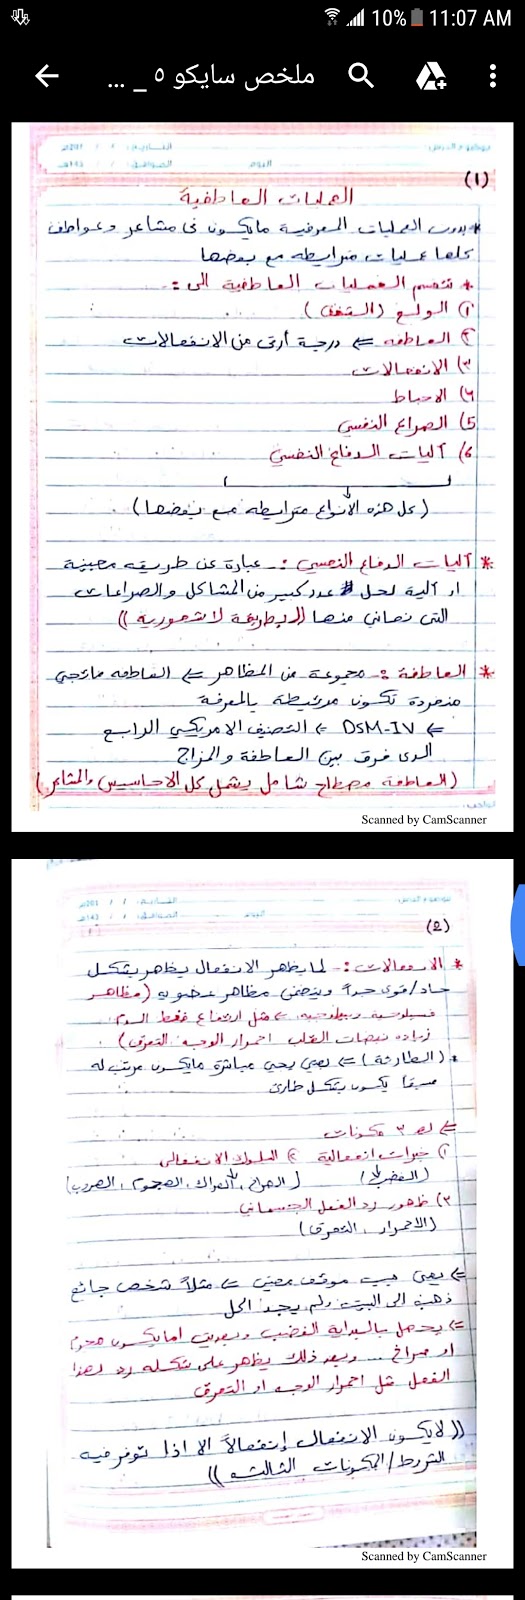 10% 11:07 AM
ملخص سايكو ٥ _ ...
(1)
العمليات العاطفية
* بدون العمليات المعرفية مايكون في مشاعر وعواطف
كلها عمليات مترابطه مع بعضها
* تنقسم العمليات العاطفية الى :-
١) الولع (الشغف)
٢) العاطفه ⇐ درجة أرقى من الانفعالات
٣) الانفعالات
٤) الاحباط
5) الصراع النفسي
6) آليات الدفاع النفسي
(كل هذه الأنواع مترابطه مع بعضها)
* آليات الدفاع النفسي :- عبارة عن طريقه معينة
او آلية لحل عدد كبير من المشاكل والصراعات
التي نعاني منها ((بطريقة لا شعورية))
* العاطفة :- مجموعة من المظاهر ⇐ العاطفه ماتجي
منفردة تكون مرتبطة بالمعرفة
⇐ DSM-IV ⇐ التصنيف الامريكي الرابع
الذي فرق بين العاطفة والمزاج
(العاطفة مصطلح شامل يشمل كل الاحاسيس والمشاعر)
Scanned by CamScanner
(2)
* الانفعالات :- لما يظهر الانفعال يظهر بشكل
حاد/قوي جداً ويتضمن مظاهر عضويه (مظاهر
فسيولوجية وبيولوجيه ⇐ مثل ارتفاع ضغط الدم
زياده نبضات القلب احمرار الوجه التعرق)
* (الطارئة) ⇐ يعني يجي مباشرة مايكون مرتب له
مسبقا يكون بشكل طارئ
⇐ له ٣ مكونات
١) خبرات انفعالية ٢) السلوك الانفعالي
(الغضب) (الصراخ، العراك، الهجوم، الهروب)
٣) ظهور رد الفعل الجسماني
(الاحمرار، التعرق)
⇐ يعني حسب موقف معين ⇐ مثلاً شخص جائع
ذهب الى البيت ولم يجد اكل
⇐ يحصل بالبداية الغضب وبعدين اما يكون هجوم
او صراخ ... وبعد ذلك يظهر على شكله رد لهذا
الفعل مثل احمرار الوجه او التعرق
((لا يكون الانفعال إنفعالاً الا اذا توفر فيه
الشروط/المكونات الثلاثه))
Scanned by CamScanner